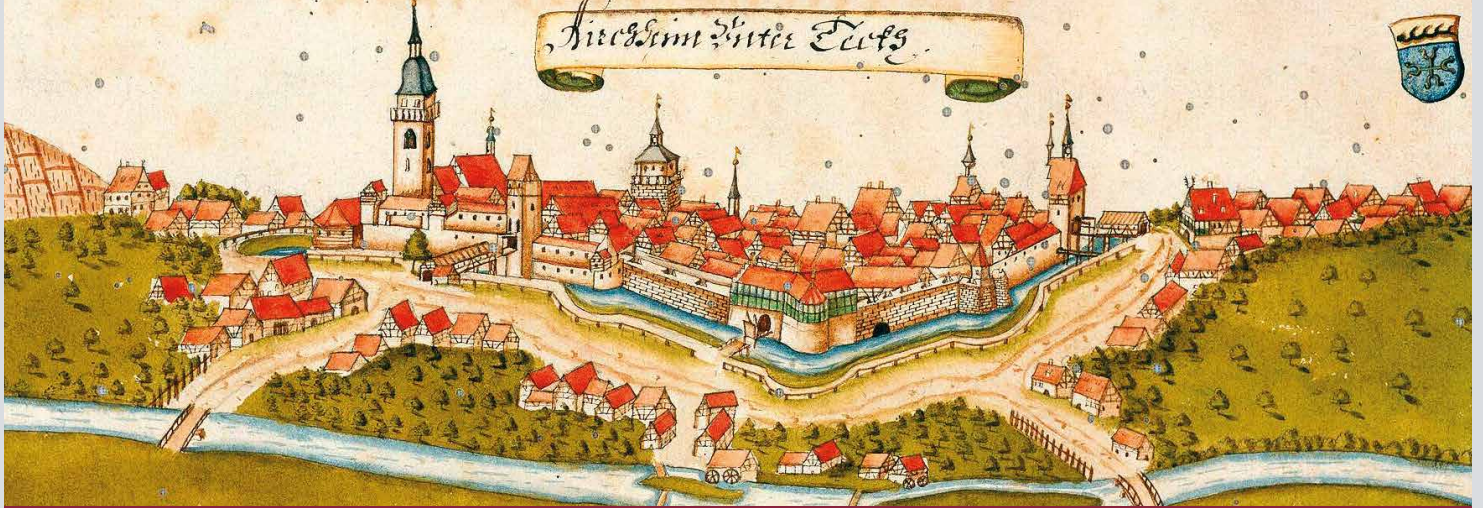 Kirchheim Vnter Teckh.